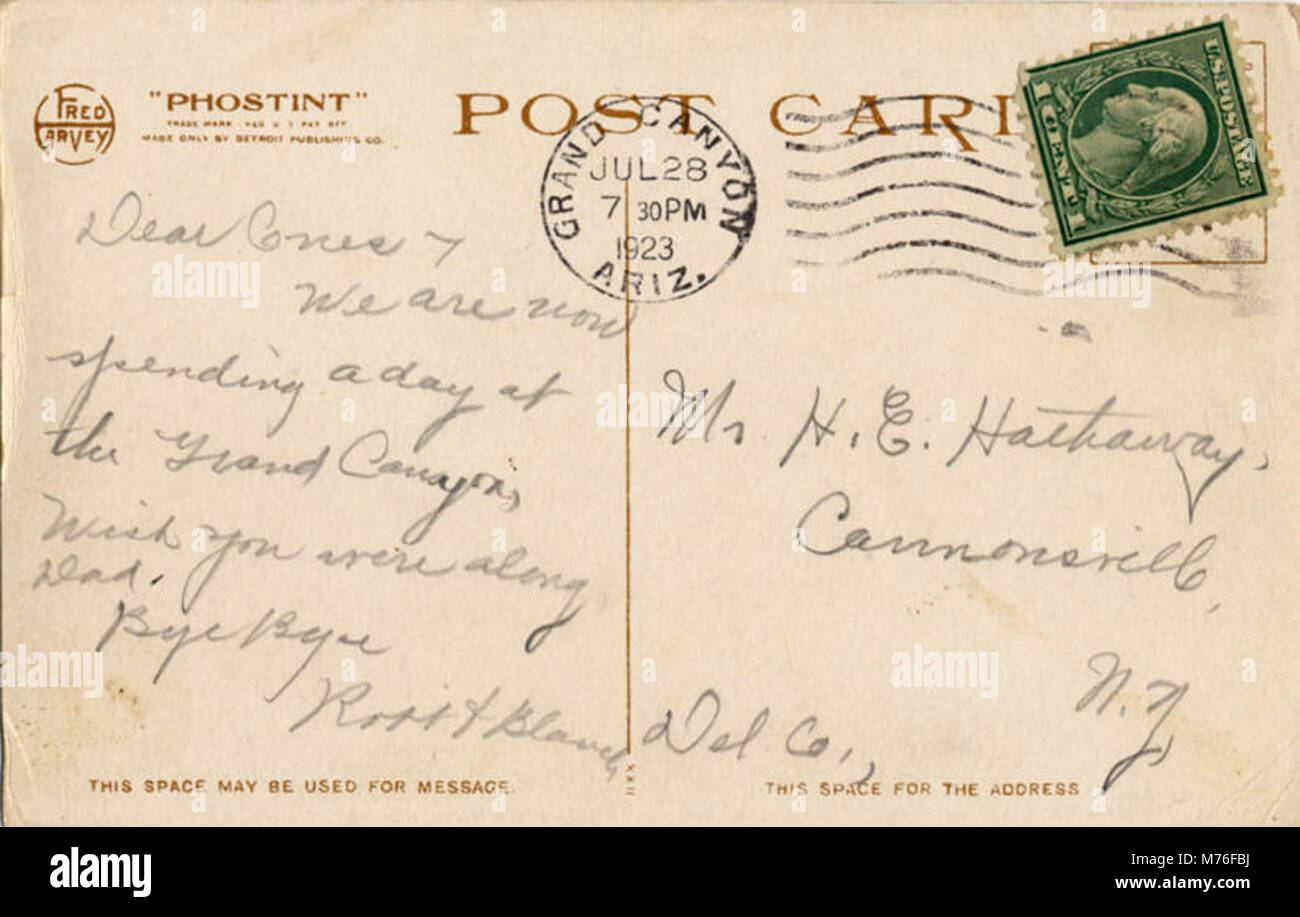 FRED
HARVEY
"PHOSTINT"
TRADE MARK REG U S PAT OFF
MADE ONLY BY DETROIT PUBLISHING CO.
POST CARD
GRAND CANYON
JUL 28
7 30PM
1923
ARIZ.
U.S. POSTAGE
1 CENT 1
Dear Ones
We are now
spending a day at
the Grand Canyon,
Wish you were along,
Dad.
Bye Bye
Ross & Blanch
Mr. H. E. Hathaway,
Cannonsville,
N.Y.
Del Co.,
THIS SPACE MAY BE USED FOR MESSAGE.
THIS SPACE FOR THE ADDRESS
alamy
alamy
M76FBJ
www.alamy.com